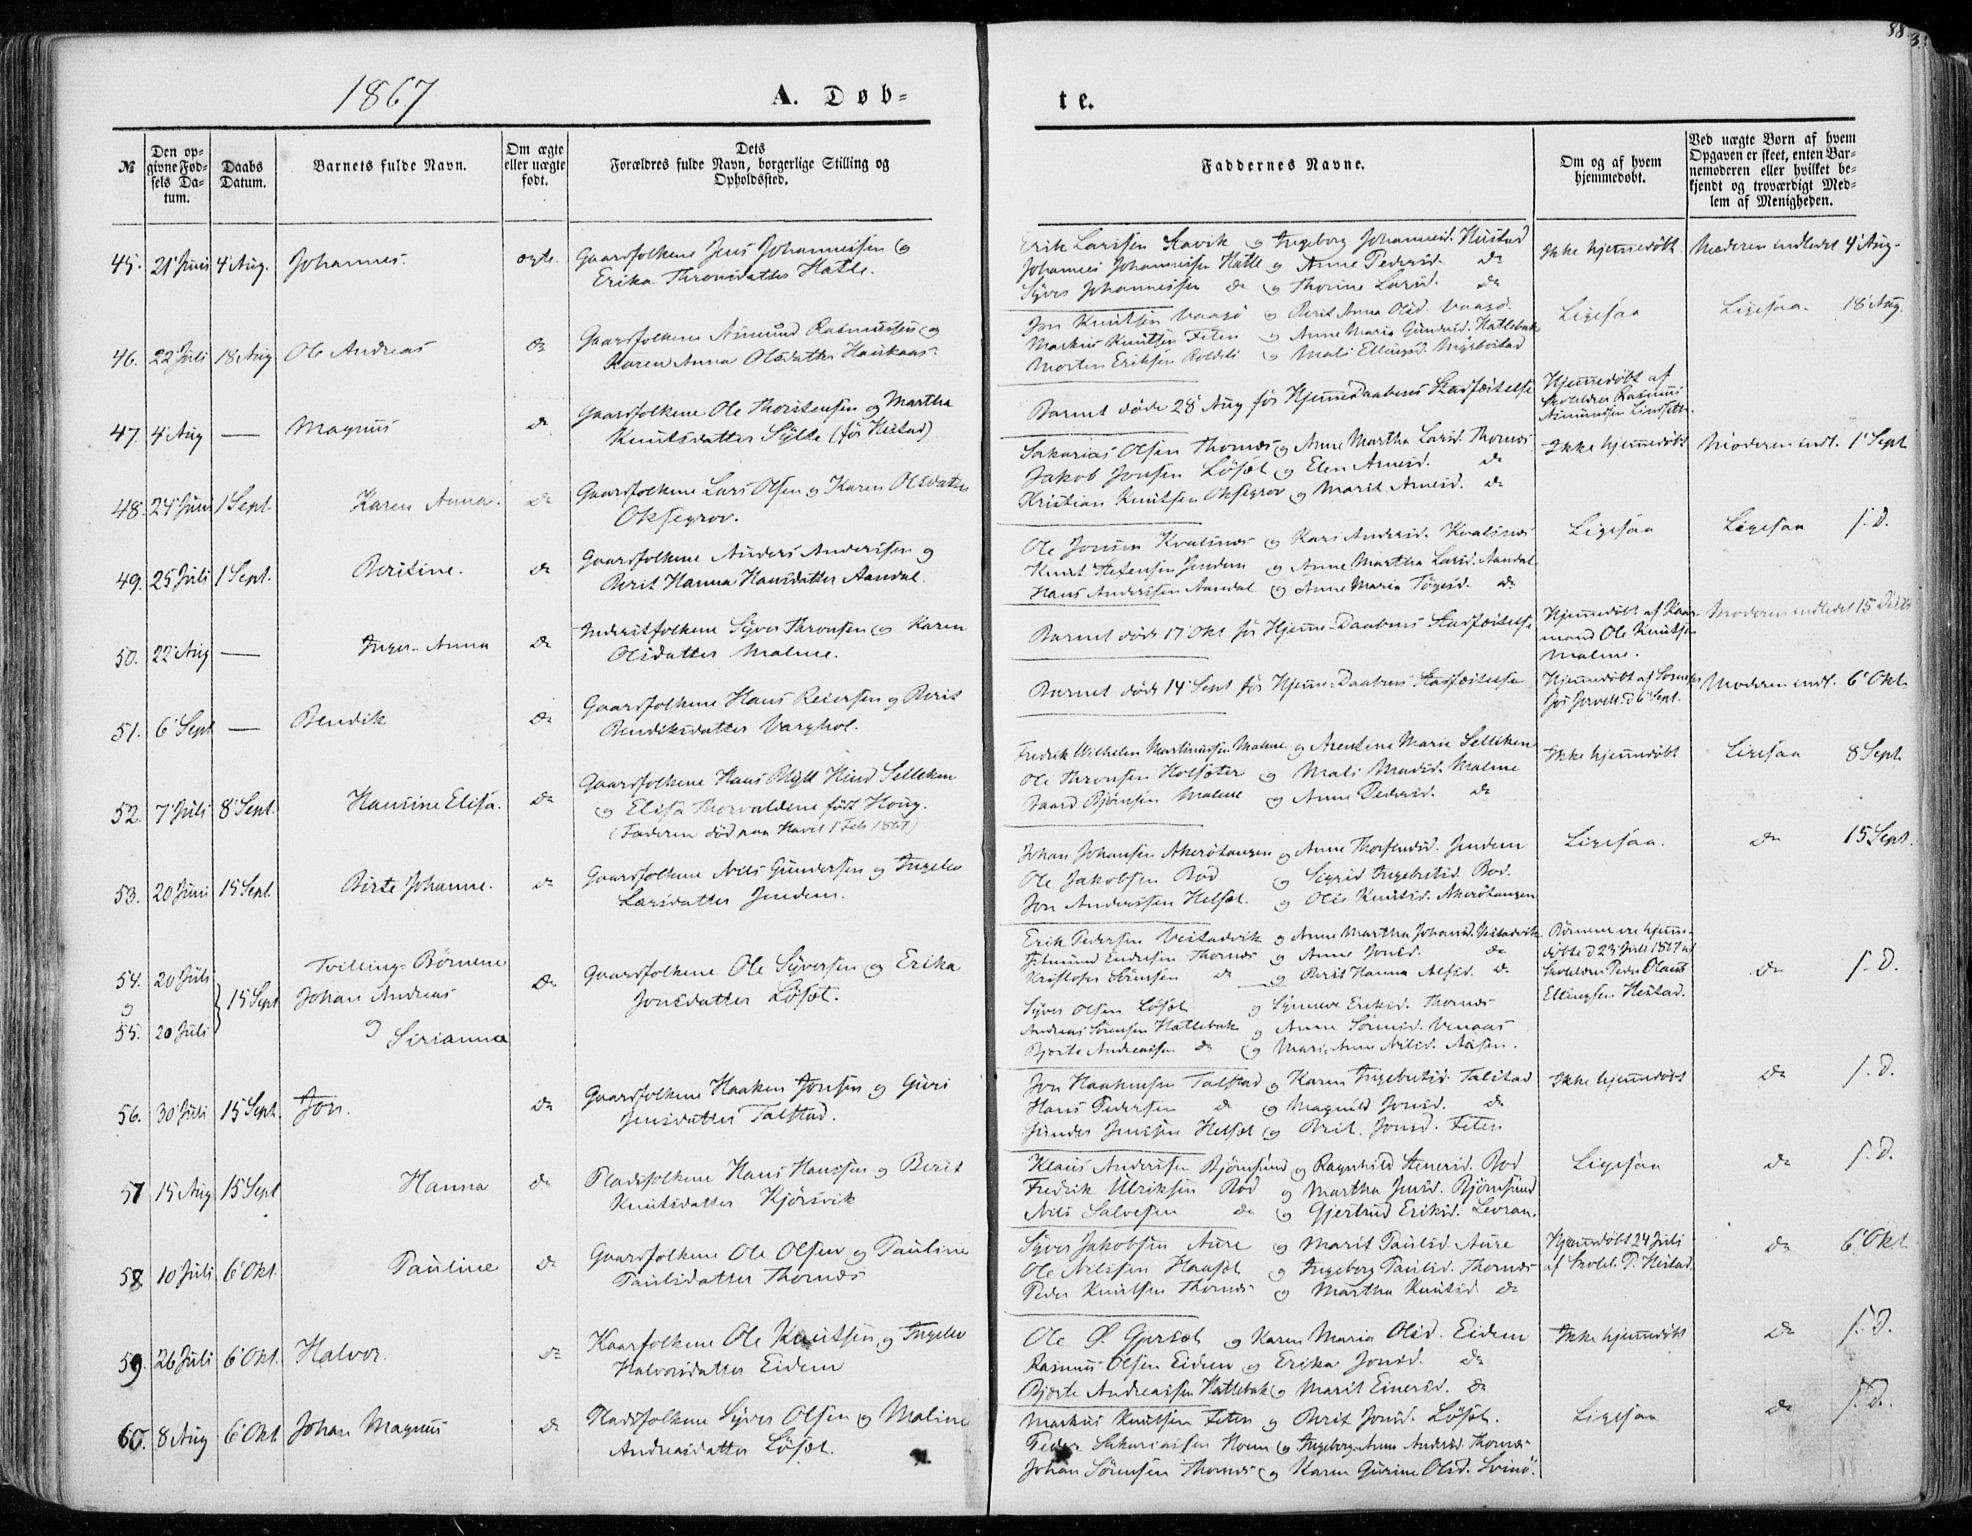 88
1867
A. Døb-
te.
№
Den op-
givne Fød-
sels Da-
tum.
Daabs
Datum.
Barnets fulde Navn.
Om ægte
eller uægte
født.
Dets
Forældres fulde Navn, borgerlige Stilling og
Opholdssted.
Faddernes Navne.
Om og af hvem
hjemmedøbt.
Ved uægte Born af hvem
Opgaven er skeet, enten Bar-
nemoderen eller hvilket be-
kjendt og troværdigt Med-
lem af Menigheden.
45. 21 Juni 4 Aug. Johannes. ægte. Gaardfolkene Jens Johannessen og
Erika Thronsdatter Hatle.
Erik Larssen Stavik og Ingeborg Johannesd. Hustad
Johannes Johannessen Hatle og Anne Pedersd. do
Syver Johannessen do og Thorine Larsd. do
Ikke hjemmedøbt Moderen indledet 4 Aug.
46. 22 Juli 18 Aug Ole Andreas do Gaardfolkene Asmund Rasmussen og
Karen Anna Olsdatter Haukaas
Jon Knutsen Vaagø og Berit Anna Olsd. Vaagø.
Markus Knutsen Feten og Anne Maria Gundersd. Hatlebak
Morten Eriksen Roldsli og Mali Ellingsd. Myrbostad
Ligesaa Ligesaa. 18 Aug.
47. 4 Aug — Magnus do Gaardfolkene Ole Thorstensen og Martha
Knutsdatter Sylte (før Hestad)
Barnet døde 28 Aug før Hjemmedaabens Stadfæstelse
Hjemmedøbt af
Skoleldrer Rasmus
Asmundsen Lindset.
48. 24 Juni 1 Sept. Karen Anna. do Gaardfolkene Lars Olsen og Karen Olsdatter
Oksegrov.
Sakarias Olsen Thornæs og Anne Martha Larsd. Thornæs
Jakob Jonsen Løset og Elen Arnesd. do
Kristian Knutsen Oksegrov og Marit Arnesd. do
Ikke hjemmedøbt Moderen indl. 1 Sept
49. 25 Juli 1 Sept. Beritine. do Gaardfolkene Anders Anderssen og
Berit Hanna Hansdatter Aandal.
Ole Jonsen Kvalsnes og Kari Andersd. Kvalsnes
Knut Stefensen Jendem og Anne Martha Larsd. Aandal
Hans Anderssen Aandal og Anne Maria Tøgesd. do
Ligesaa Ligesaa s. D.
50. 22 Aug — Inger-Anna do Inderstfolkene Syver Thronsen og Karen
Olsdatter Malme.
Barnet døde 17 Okt før Hjemme-Daabens Stadfæstelse
Hjemmedøbt af Kaar-
mand Ole Knutsen
Malme.
Moderen indledet 15 Dec
51. 6 Sept — Bendik do Gaardfolkene Hans Reiersen og Berit
Bendiksdatter Varghol.
Barnet døde 14 Sept før Hjemme-Daabens Stadfæstelse
Moderen indl. 6 Okt
52. 7 Juli 8 Sept. Hansine Elisa. do Gaardfolkene Hans Blytt Hind Selliken
og Elisa Thorvaldine født Houg.
(Faderen død paa Havet 1 Feb 1867)
Fredrik Wilhelm Martinussen Malme og Arentine Marie Selliken
Ole Thronsen Holsæter og Mali Madsd. Malme
Baard Bjørnsen Malme og Anne Pedersd. do
Ikke hjemmedøbt Ligesaa 8 Sept.
53. 20 Juni 15 Sept. Birte Johanne. do Gaardfolkene Nils Gunderssen og Ingebor
Larsdatter Jendem.
Johan Johansen Akerøtangen og Anne Thorstensd. Jendem
Ole Jakobsen Bod og Sigrid Ingebretsd. Bod.
Jon Anderssen Helset. og Olie Knutsd. Akerøtangen
Ligesaa. do 15 Sept.
54. 20 Juli Tvilling-Børnene
og 15 Sept Johan Andreas
55. 20 Juli og Sirianna
do Gaardfolkene Ole Syversen og Erika
Jonsdatter Løset.
Erik Pedersen Vestadvik og Anne Martha Johansd. Vestadvik
Gudmund Endresen Thornæs og Anne Jonsd. do
Kristofer Sørensen do og Berit Hanna Alfsd. do
Syver Olsen Løset og Synneve Eriksd. Thornæs
Andreas Sørensen Hatlebak og Anne Sørensd. Venaas
Bjerte Andreassen do og Mari-Anne Nilsd. Aasen.
Børnene ere hjemme-
døbte d 23 Juli 1867 af
Skoleldrer Peder Olaus
Ellingsen Hestad.
do s. D.
56. 30 Juli 15 Sept. Jon. do Gaardfolkene Haaken Jonsen og Guri
Jensdatter Talstad.
Jon Haakensen Talstad og Karen Ingebretsd. Talstad
Hans Pedersen do og Magnild Jonsd. do
Gunder Jenssen Helset og Brit. Jonsd. Feten
Ikke hjemmedøbt do s. D.
57 15 Aug 15 Sept Hanna do Pladsfolkene Hans Hanssen og Berit
Knutsdatter Kjørsvik
Klaus Andersen Bjørnsund og Ragnhild Stenersd. Bod
Fredrik Ulriksen Bod og Martha Jensd. Bjørnsund
Nils Salvesen do og Gjertrud Eriksd. Levran.
Ligesaa do s. D.
58 10 Juli 6 Okt. Pauline do Gaardfolkene Ole Olsen og Pauline
Paulsdatter Thornæs
Syver Jakobsen Aure og Marit Paulsd. Aure
Ole Nilssen Haaset og Ingeborg Paulsd. Thornæs
Peder Knutsen Thornæs og Martha Knutsd. do
Hjemmedøbt 24 Juli
af Skolel. P. Hestad.
do 6 Okt
59. 26 Juli 6 Okt. Halvor. do Kaarfolkene Ole Knutsen og Ingebor
Halvorsdatter Eidem
Ole Ø. Gjerset og Karen Maria Olsd. Eidem
Rasmus Olsen Eidem og Erika Jonsd. do
Bjerte Andreassen Hatlebak og Marit Einersd. do
Ikke hjemmedøbt do s. D.
60. 8 Aug 6 Okt Johan Magnus do Pladsfolkene Syver Olsen og Maline
Andreasdatter Løset.
Markus Knutsen Feten og Brit Jonsd. Løset.
Peder Sakariassen Hoem og Ingeborg-Anne Andersd. Thornæs
Johan Sørensen Thornæs og Karen Gurine Olsd. Svinø.
Ligesaa do s. D.